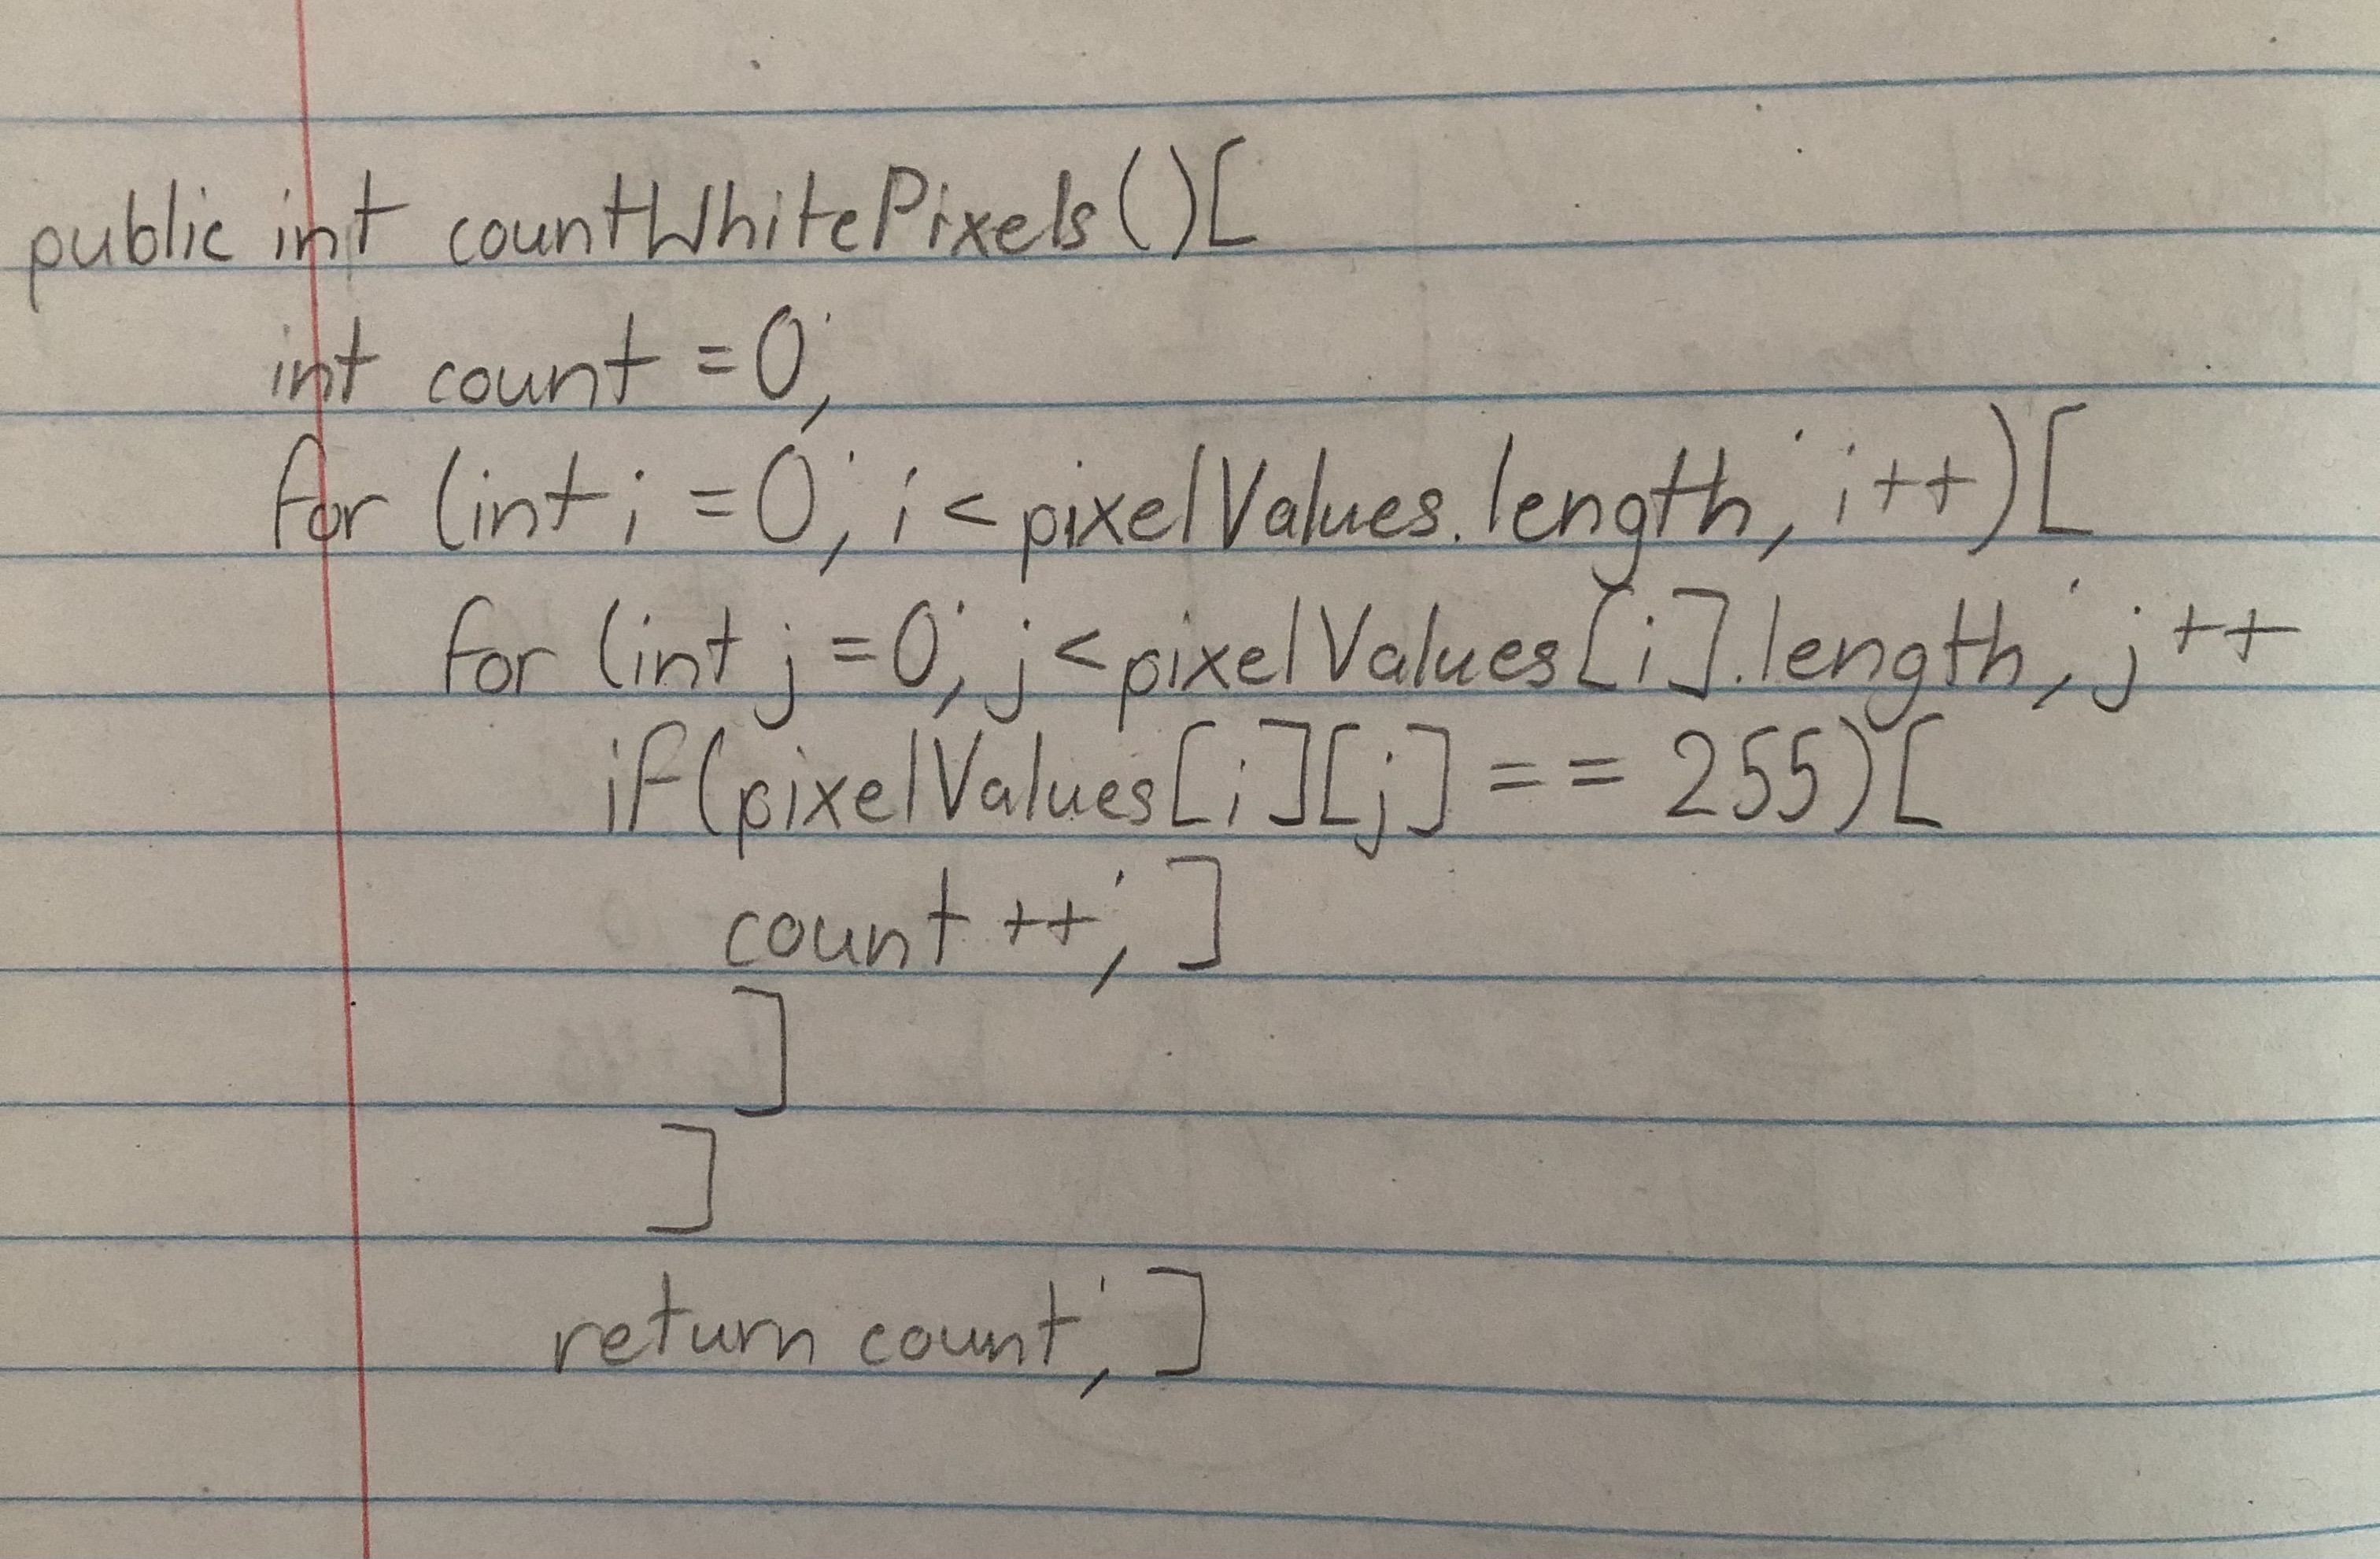 public int countWhitePixels()[
int count = 0;
for (int i = 0; i < pixelValues.length; i++)[
for (int j = 0; j < pixelValues[i].length; j++
if(pixelValues[i][j] == 255)[
count ++; ]
]
]
return count; ]